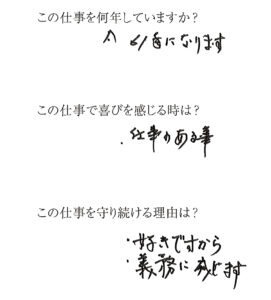 この仕事を何年していますか?
年になります
この仕事で喜びを感じる時は?
・仕事のある事
この仕事を守り続ける理由は?
・好きですから
・義務に